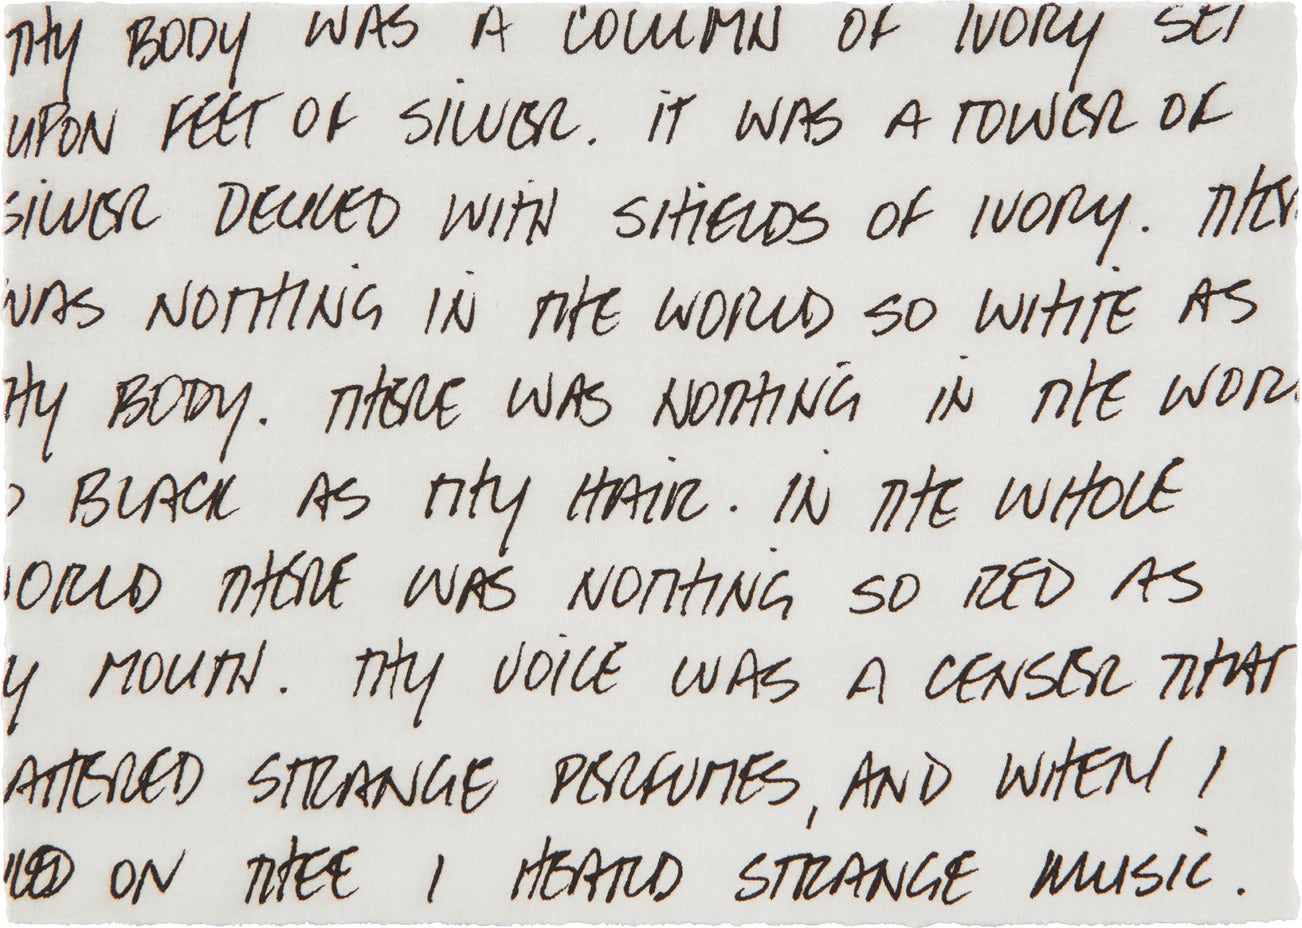 THY BODY WAS A COLUMN OF IVORY SET
UPON FEET OF SILVER. IT WAS A TOWER OF
SILVER DECKED WITH SHIELDS OF IVORY. THER
WAS NOTHING IN THE WORLD SO WHITE AS
THY BODY. THERE WAS NOTHING IN THE WOR
BLACK AS THY HAIR. IN THE WHOLE
ORLD THERE WAS NOTHING SO RED AS
Y MOUTH. THY VOICE WAS A CENSER THAT
ATTERED STRANGE PERFUMES, AND WHEN I
ON THEE I HEARD STRANGE MUSIC.